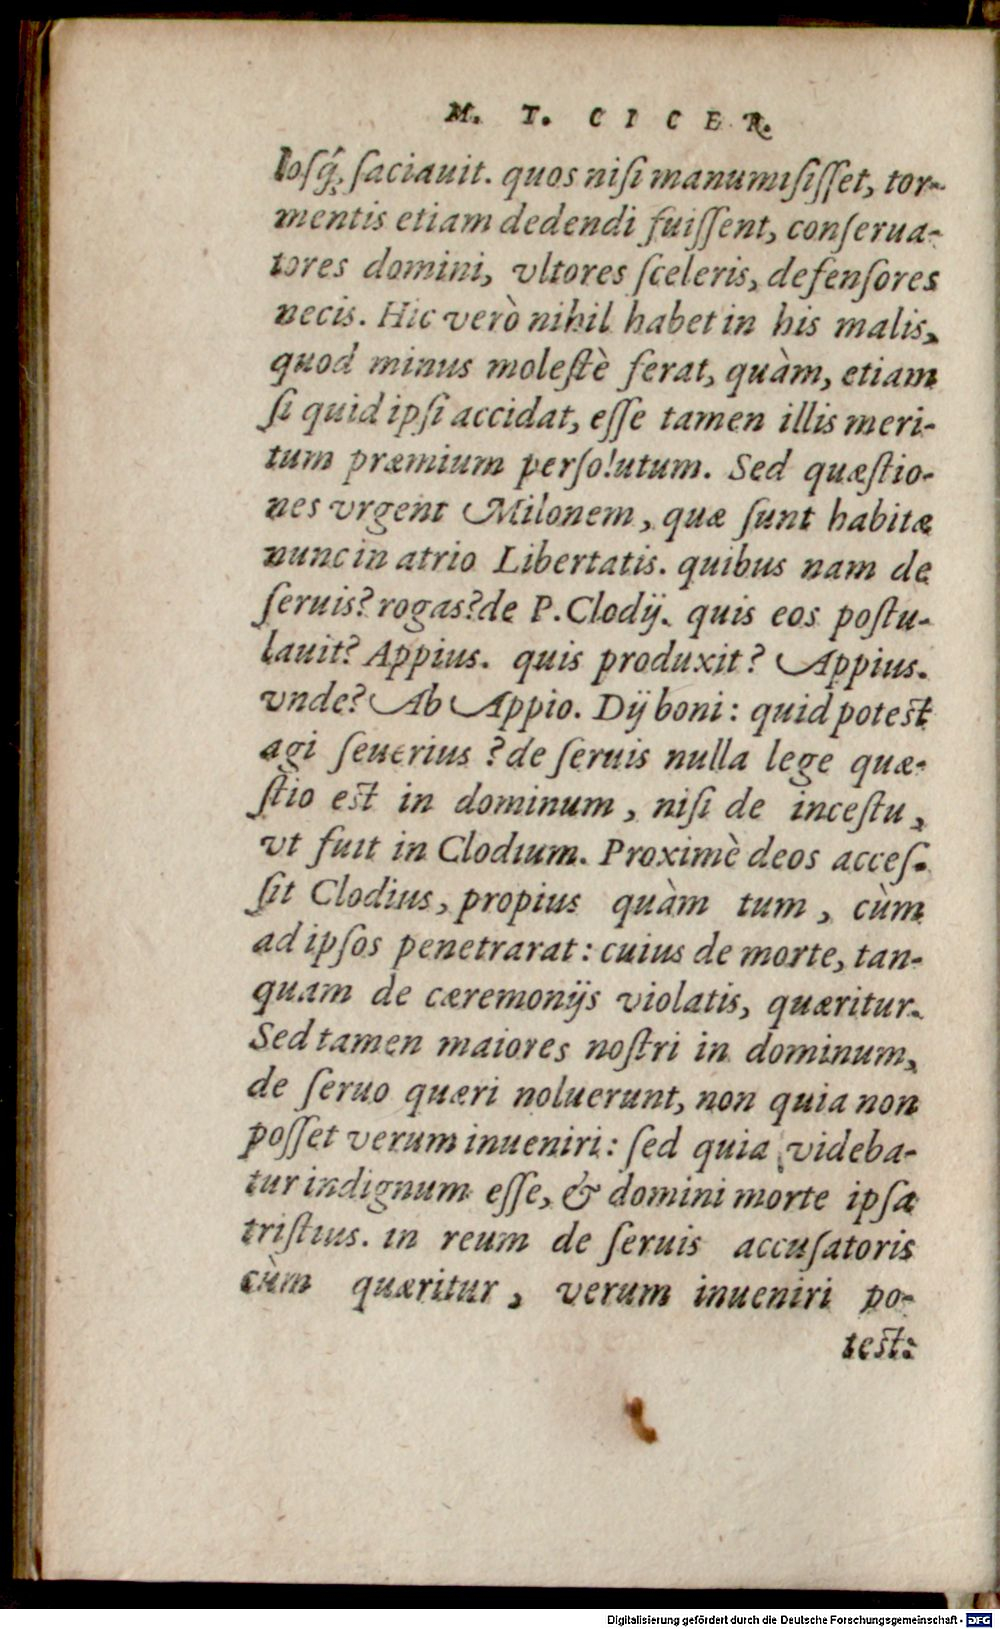 M. T. CICER.
losq́; saciauit. quos nisi manumisisset, tor-
mentis etiam dedendi fuissent, conserua-
tores domini, vltores sceleris, defensores
necis. Hic verò nihil habet in his malis,
quod minus molestè ferat, quàm, etiam
si quid ipsi accidat, esse tamen illis meri-
tum præmium persolutum. Sed quæstio-
nes vrgent Milonem, quæ sunt habitæ
nunc in atrio Libertatis. quibus nam de
seruis? rogas? de P. Clodij. quis eos postu-
lauit? Appius. quis produxit? Appius.
vnde? Ab Appio. Dij boni: quid potest
agi seuerius? de seruis nulla lege quæ-
stio est in dominum, nisi de incestu,
vt fuit in Clodium. Proximè deos acces-
sit Clodius, propius quàm tum, cùm
ad ipsos penetrarat: cuius de morte, tan-
quam de cæremonijs violatis, quæritur.
Sed tamen maiores nostri in dominum,
de seruo quæri noluerunt, non quia non
posset verum inueniri: sed quia videba-
tur indignum esse, & domini morte ipsa
tristius. in reum de seruis accusatoris
cùm quæritur, verum inueniri po-
test:
Digitalisierung gefördert durch die Deutsche Forschungsgemeinschaft - DFG